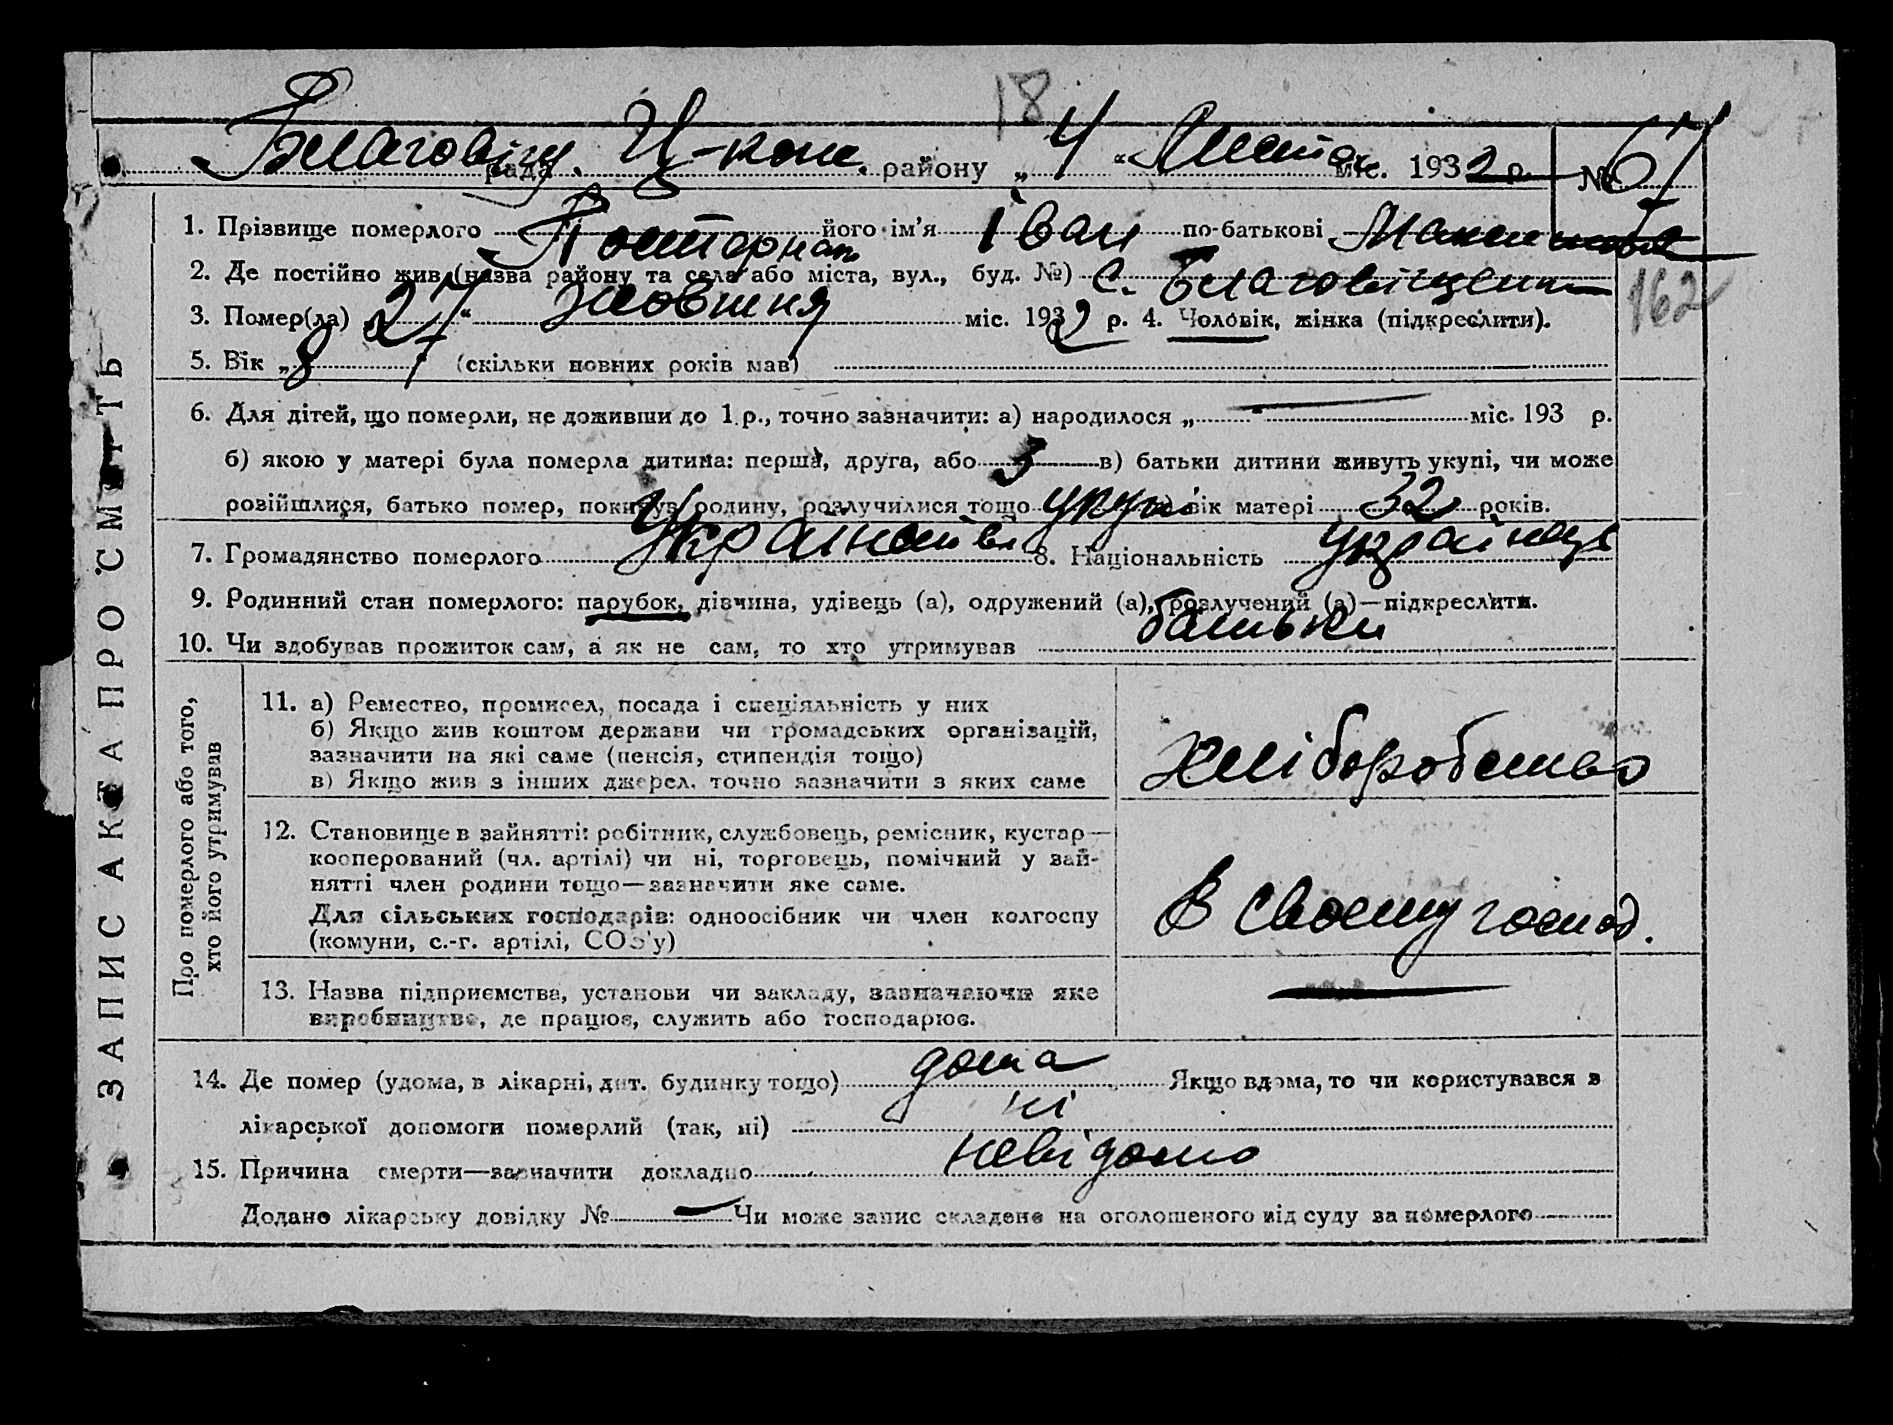 18
Благовіщ. рада Ц-кош. району „ 4 " Листоп міс. 1932 р. № 67
1. Прізвище померлого його ім'я Іван по-батькові
2. Де постійно жив (назва району та села або міста, вул., буд. №) с. Благовіщенк
162
3. Помер(ла) 27 " жовтня міс. 1932 р. 4. Чоловік, жінка (підкреслити).
5. Вік „ 8 " (скільки повних років мав)
6. Для дітей, що померли, не доживши до 1 р., точно зазначити: а) народилося „ — " міс. 193 р.
б) якою у матері була померла дитина: перша, друга, або 3 в) батьки дитини живуть укупі, чи може
розійшлися, батько помер, покинув родину, розлучилися тощо укупі вік матері 32 років.
7. Громадянство померлого 8. Національність українець
9. Родинний стан померлого: парубок, дівчина, удівець (а), одружений (а), розлучений (а)—підкреслити.
10. Чи здобував прожиток сам, а як не сам, то хто утримував батьки
ЗАПИС АКТА ПРО СМЕРТЬ
Про померлого або того,
хто його утримував
11. а) Ремество, промисел, посада і спеціяльність у них
б) Якщо жив коштом держави чи громадських організацій,
зазначити на які саме (пенсія, стипендія тощо)
в) Якщо жив з інших джерел, точно зазначити з яких саме
хліборобство
12. Становище в зайнятті: робітник, службовець, ремісник, кустар—
кооперований (чл. артілі) чи ні, торговець, помічний у зай-
нятті член родини тощо—зазначити яке саме.
Для сільських господарів: одноосібник чи член колгоспу
(комуни, с.-г. артілі, СОЗ'у)
В своєму господ.
13. Назва підприємства, установи чи закладу, зазначаючи яке
виробництво, де працює, служить або господарює.
—
14. Де помер (удома, в лікарні, дит. будинку тощо) дома Якщо вдома, то чи користувався з
лікарської допомоги померлий (так, ні) ні
15. Причина смерти—зазначити докладно невідомо
Додано лікарську довідку № — Чи може запис складено на оголошеного від суду за померлого